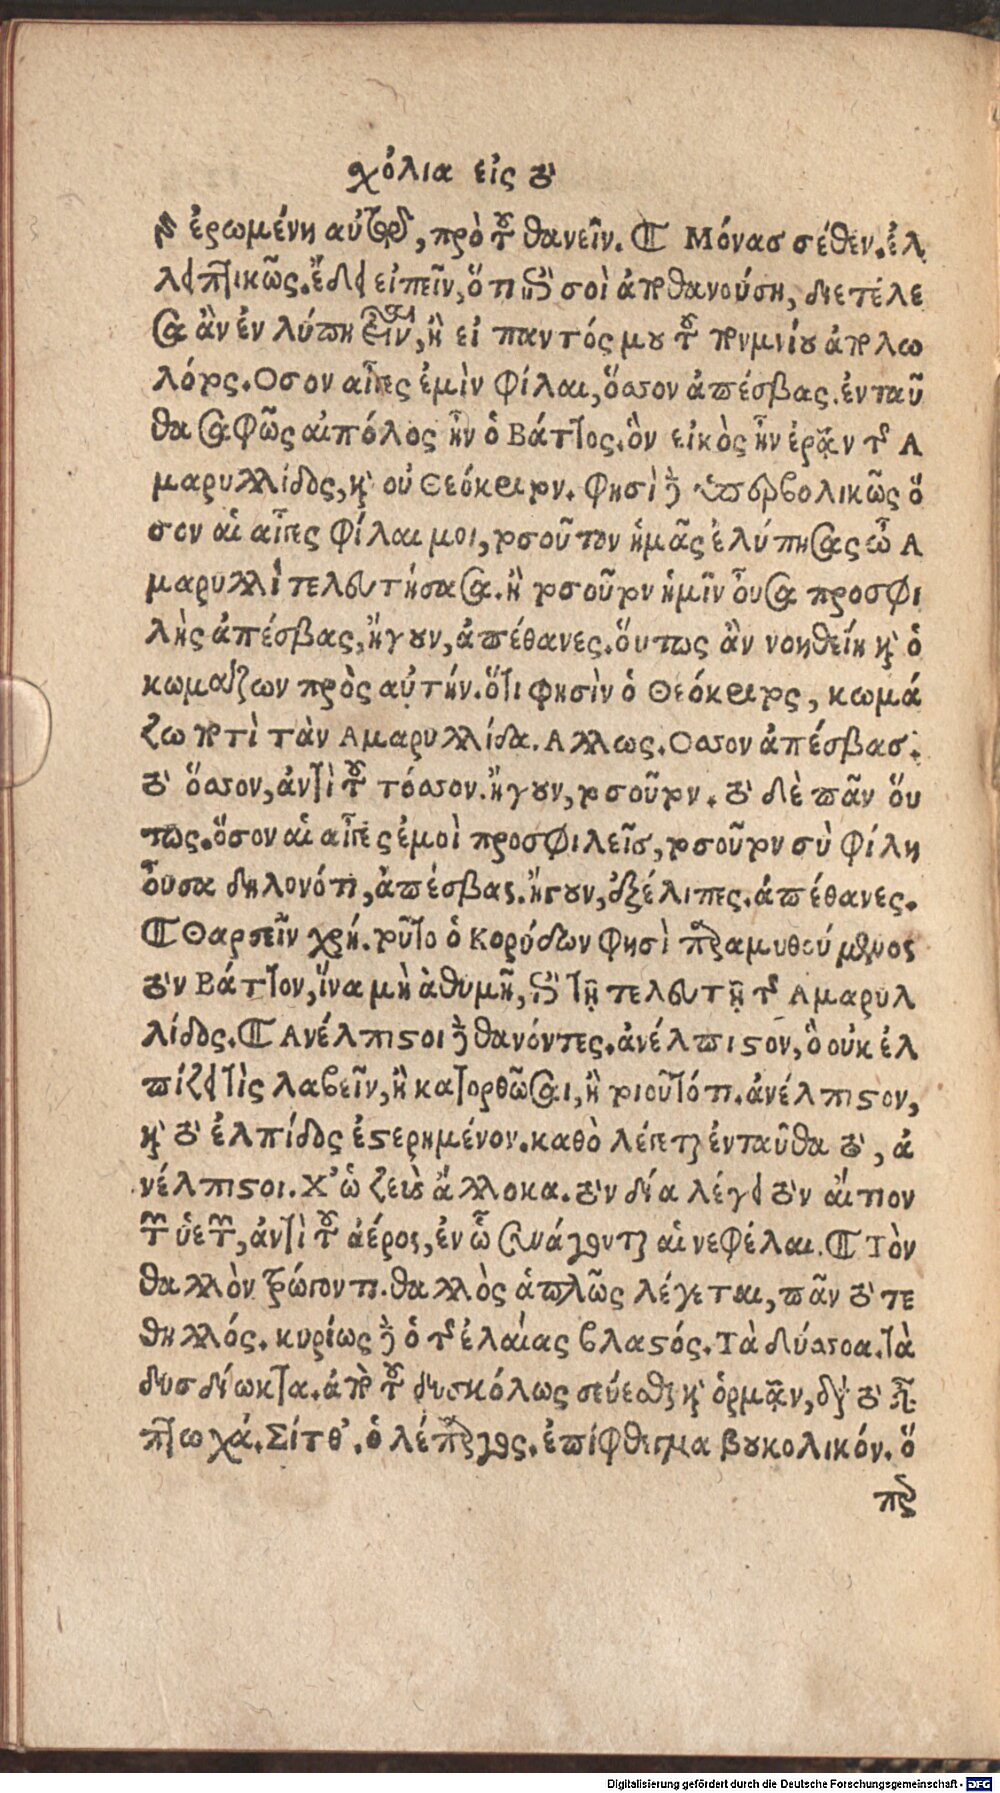 χόλια εἰς τὸ
ἡ ἐρωμένη αὐτοῦ, πρὸ τοῦ θανεῖν. ¶ Μόνας σέθεν. ἐλ
λειπτικῶς. ἔδει εἰπεῖν, ὅτι ἐπὶ σοὶ ἀποθανούσῃ, διετέλε
σα ἂν ἐν λύπῃ, ἢ εἰ παντός μου τοῦ ποιμνίου ἀπολω
λότος. Οσον αἶγες ἐμὶν φίλαι, ὅσσον ἀπέσβας. ἐνταῦ
θα σαφῶς αἰπόλος ἦν ὁ Βάττος. ὃν εἰκὸς ἦν ἐρᾷν τῆς Α
μαρυλλίδος, καὶ οὐ Θεόκριτον. φησὶ δὲ ὑπερβολικῶς ὅ
σον αἱ αἶγες φίλαι μοι, τοσοῦτον ἡμᾶς ἐλύπησας ὦ Α
μαρυλλὶ τελευτήσασα. ἢ τοσοῦτον ἡμῖν οὖσα προσφι
λὴς ἀπέσβας, ἤγουν, ἀπέθανες. οὕτως ἂν νοηθείη καὶ ὁ
κωμάζων πρὸς αὐτήν. ὅτι φησὶν ὁ Θεόκριτος, κωμά
ζω ποτὶ τὰν Αμαρυλλίδα. Αλλως. Οσσον ἀπέσβας.
τὸ ὅσσον, ἀντὶ τοῦ τόσσον. ἤγουν, τοσοῦτον. τὸ δὲ πᾶν οὕ
τως. ὅσον αἱ αἶγες ἐμοὶ προσφιλεῖς, τοσοῦτον σὺ φίλη
οὖσα δηλονότι, ἀπέσβας. ἤγουν, ἐξέλιπες. ἀπέθανες.
¶ Θαρσεῖν χρή. τοῦτο ὁ Κορύδων φησὶ παραμυθούμενος
τὸν Βάττον, ἵνα μὴ ἀθυμῇ, ἐπὶ τῇ τελευτῇ τῆς Αμαρυλ
λίδος. ¶ Ανέλπιστοι δὲ θανόντες. ἀνέλπιστον, ὃ οὐκ ἐλ
πίζει τὶς λαβεῖν, ἢ κατορθῶσαι, ἢ τοιοῦτό τι. ἀνέλπιστον,
καὶ τὸ ἐλπίδος ἐστερημένον. καθὸ λέγεται ἐνταῦθα τὸ, ἀ
νέλπιστοι. Χ' ὡ ζεὺς ἄλλοκα. τὸν δία λέγει τὸν αἴτιον
τῶν ὑετῶν, ἀντὶ τοῦ ἀέρος, ἐν ᾧ συνάγονται αἱ νεφέλαι. ¶ Τὸν
θαλλὸν τρώγοντι. θαλλὸς ἁπλῶς λέγεται, πᾶν τὸ τε
θηλλός. κυρίως δὲ ὁ τῆς ἐλαίας βλαστός. Τὰ δύσσοα. τὰ
δυσδίωκτα. ἀπὸ τοῦ δυσκόλως σεύεσθαι καὶ ὁρμᾷν, διὰ τὸ εἶναι
πτωχά. Σίτθ'. ὁ λέπαργος. ἐπίφθεγμα βουκολικόν. ὅ
περ
Digitalisierung gefördert durch die Deutsche Forschungsgemeinschaft - DFG